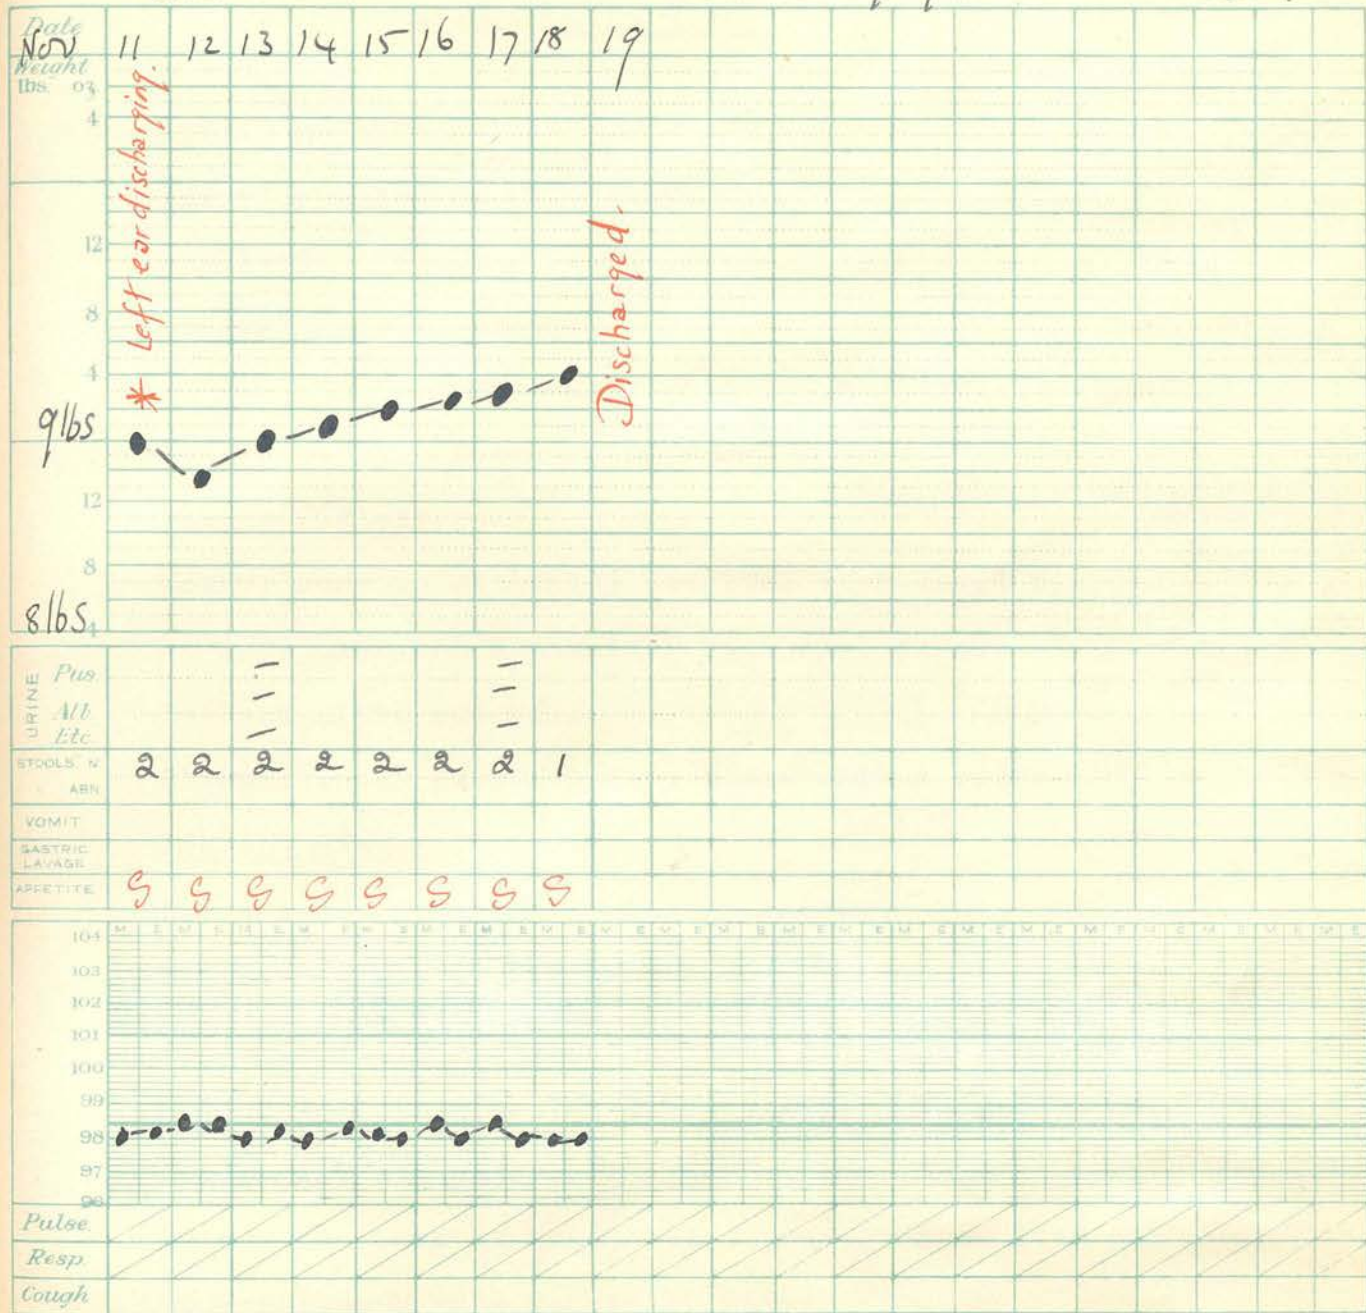 Date
Nov 11 12 13 14 15 16 17 18 19
Weight
lbs. oz
4
* Left ear discharging.
12
8
4
Discharged.
9 lbs
12
8
8 lbs 4
URINE
Pus
Alb
Etc
STOOLS. N 2 2 2 2 2 2 2 1
ABN
VOMIT
GASTRIC
LAVAGE
APPETITE S S S S S S S S
M E M E M E M E M E M E M E M E M E M E M E M E M E M E M E M E M E M E M E M E M E
104
103
102
101
100
99
98
97
96
Pulse.
Resp.
Cough